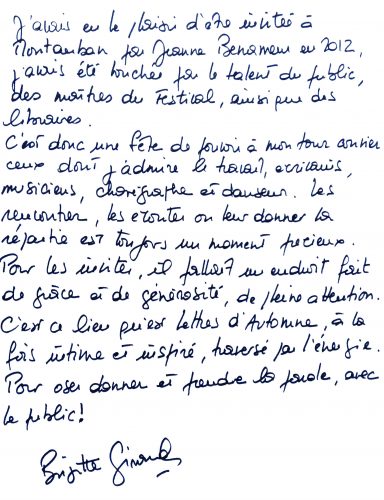 J'avais eu le plaisir d'être invitée à
Montauban par Jeanne Benameur en 2012,
j'avais été touchée par le talent du public,
des maîtres du Festival, ainsi que des
libraires.
C'est donc une fête de pouvoir à mon tour convier
ceux dont j'admire le travail, écrivains,
musiciens, chorégraphe et danseur. Les
rencontrer, les écouter ou leur donner la
répartie est toujours un moment précieux.
Pour les inviter, il fallait un endroit fait
de grâce et de générosité, de pleine attention.
C'est ce lieu qu'est Lettres d'Automne, à la
fois intime et inspiré, traversé par l'énergie.
Pour oser donner et prendre la parole, avec
le public !
Brigitte Giraud